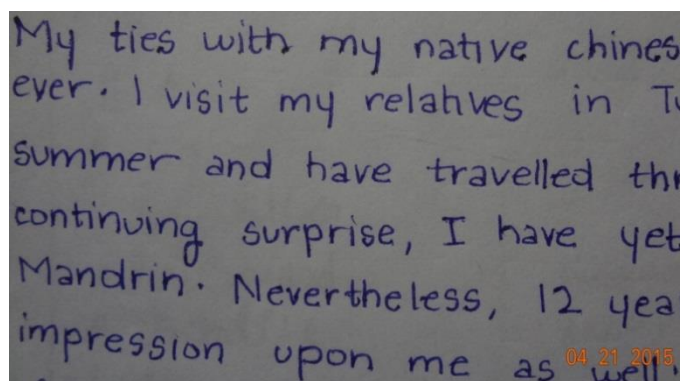 My ties with my native chines
ever. I visit my relatives in Tu
summer and have travelled thr
continuing surprise, I have yet
Mandrin. Nevertheless, 12 yea
impression upon me as well.
04 21 2015